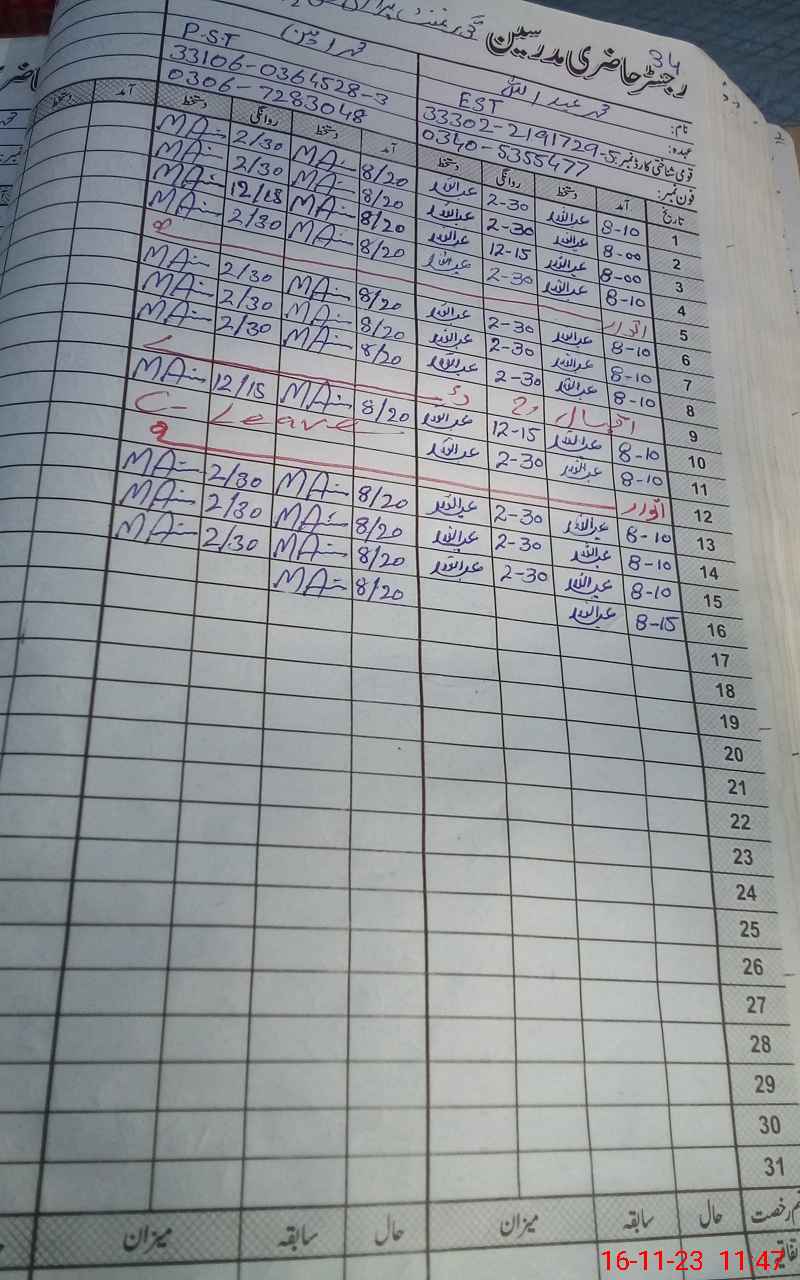 34
رجسٹر حاضری مدرسین
نام: محمد عبداللہ محمد امین
عہدہ: EST P.S.T
قومی شناختی کارڈ نمبر: 33302-2191729-5 33106-0364528-3
فون نمبر: 0340-5355477 0306-7283048
تاریخ آمد دستخط روانگی دستخط آمد دستخط روانگی دستخط آمد دستخط
1 8-10 عبداللہ 2-30 عبداللہ 8/20 MA 2/30 MA
2 8-00 عبداللہ 2-30 عبداللہ 8/20 MA 2/30 MA
3 8-00 عبداللہ 12-15 عبداللہ 8/20 MA 12/15 MA
4 8-10 عبداللہ 2-30 عبداللہ 8/20 MA 2/30 MA
5 اتوار
6 8-10 عبداللہ 2-30 عبداللہ 8/20 MA 2/30 MA
7 8-10 عبداللہ 2-30 عبداللہ 8/20 MA 2/30 MA
8 8-10 عبداللہ 2-30 عبداللہ 8/20 MA 2/30 MA
9 اقبال ڈے
10 8-10 عبداللہ 12-15 عبداللہ 8/20 MA 12/15 MA
11 8-10 عبداللہ 2-30 عبداللہ C-Leave
12 اتوار
13 8-10 عبداللہ 2-30 عبداللہ 8/20 MA 2/30 MA
14 8-10 عبداللہ 2-30 عبداللہ 8/20 MA 2/30 MA
15 8-10 عبداللہ 2-30 عبداللہ 8/20 MA 2/30 MA
16 8-15 عبداللہ 8/20 MA
17
18
19
20
21
22
23
24
25
26
27
28
29
30
31
رخصت حال سابقہ میزان حال سابقہ میزان
16-11-23 11:47